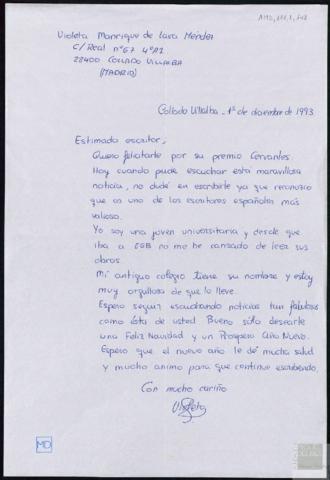 Violeta Manrique de Lara Méndez
C/ Real nº 67 4º A1
28400 COLLADO VILLALBA
(MADRID)
Collado Villalba, 1 de diciembre de 1993
Estimado escritor,
Quiero felicitarte por su premio Cervantes.
Hoy cuando pude escuchar esta maravillosa
noticia, no dudé en escribirle ya que reconozco
que es uno de los escritores españoles más
valioso.
Yo soy una joven universitaria y desde que
iba a EGB no me he cansado de leer sus
obras.
Mi antiguo colegio tiene su nombre y estoy
muy orgullosa de que lo lleve.
Espero seguir escuchando noticias tan fabulosas
como ésta de usted. Bueno sólo desearle
una Feliz Navidad y un Prospero Año Nuevo.
Espero que el nuevo año le dé mucha salud
y mucho animo para que continue escribiendo.
Con mucho cariño
Violeta
MD